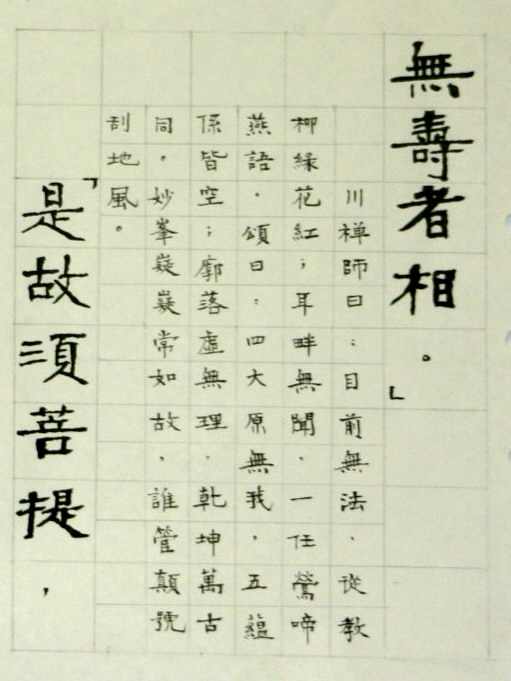 無壽者相。」
川禅師曰：目前無法，從教
柳緣花紅；耳畔無聞，一任鶯啼
燕語。頌曰：四大原無我，五蘊
係皆空；廓落虛無理，乾坤萬古
同。妙峯嶷嶷常如故，誰管顛號
刮地風。
「是故須菩提，